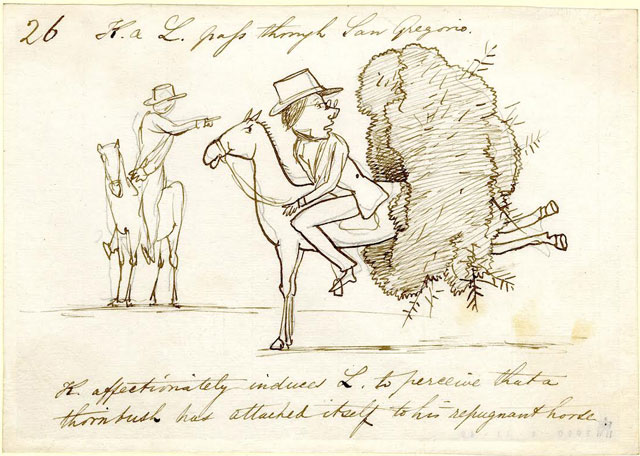 26 K. a L. pass through San Gregorio.
K. affectionately induces L. to perceive that a
thornbush has attached itself to his repugnant horse.